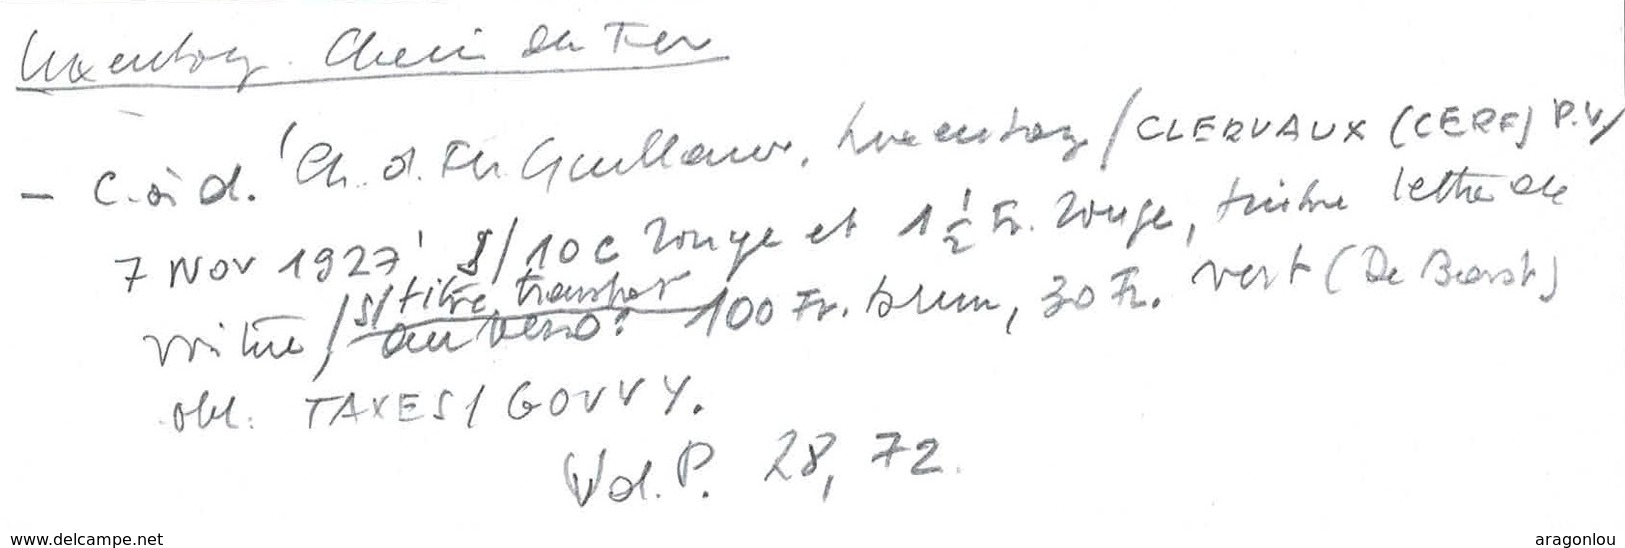 Luxembourg. Chemin de Fer
– C. à d. 'Ch. d. Fer Guillaume, Luxembourg / CLERVAUX (CERF) P.V /
7 NOV 1927' s/ 10 c rouge et 1 1/2 Fr. rouge, timbre lettre de
voiture / s/ titre transport au verso: 100 Fr. brun, 30 Fr. vert (De Bast)
obl. TAXES / GOUVY.
Vol. P. 28, 72.
www.delcampe.net
aragonlou